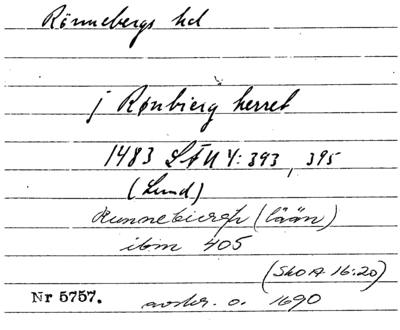 Rönnebergs hd
j Rønbierg herret
1483 LÄU 4:393, 395
(Lund)
Runnebiergh (lään)
ibm 405
(Sko A 16:20)
Nr 5757. avskr. o. 1690